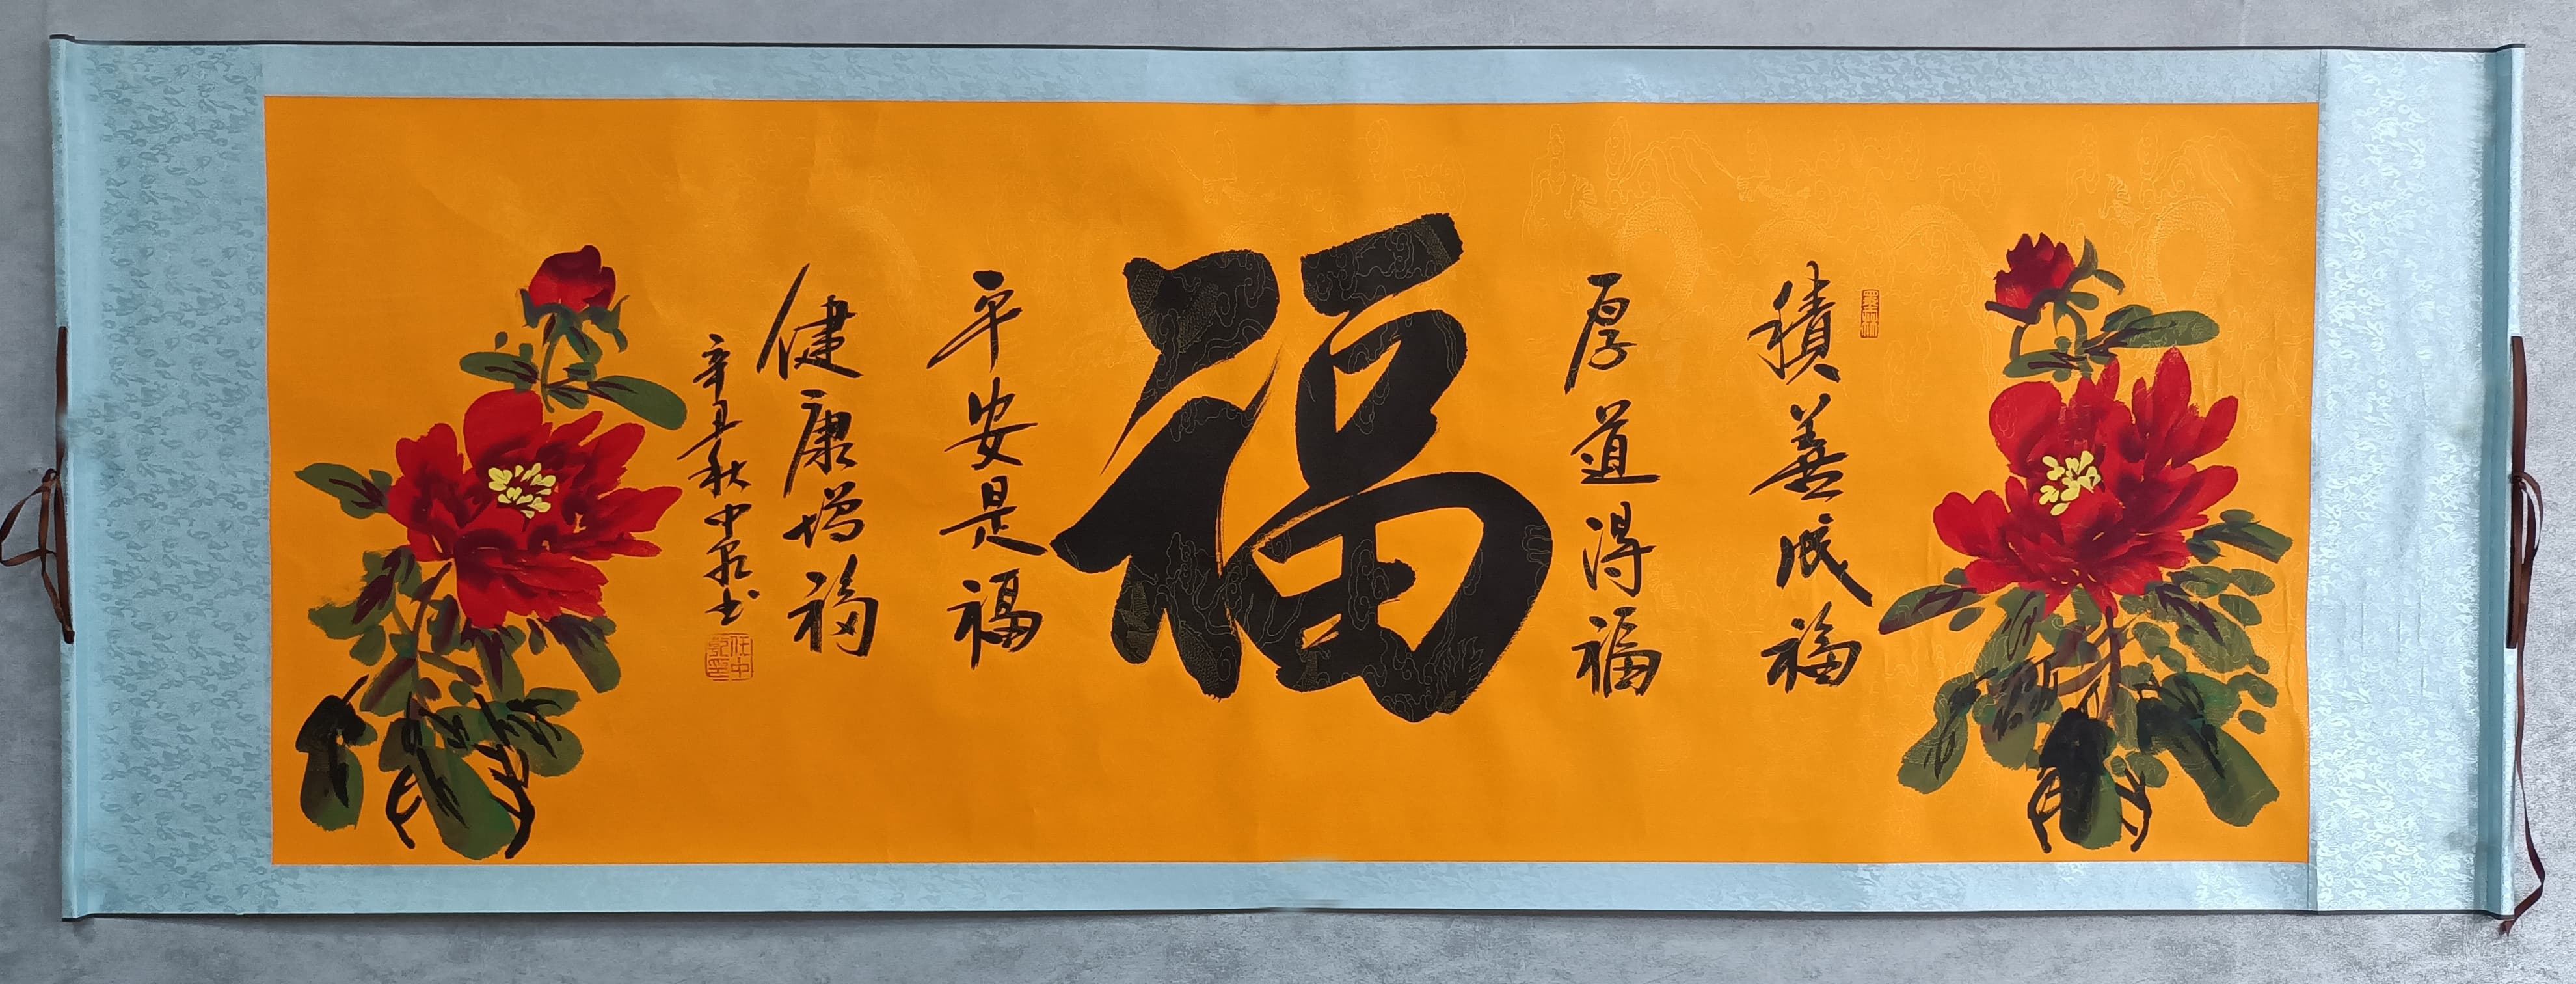 積善成福
厚道得福
福
平安是福
健康增福
辛丑秋中啟书